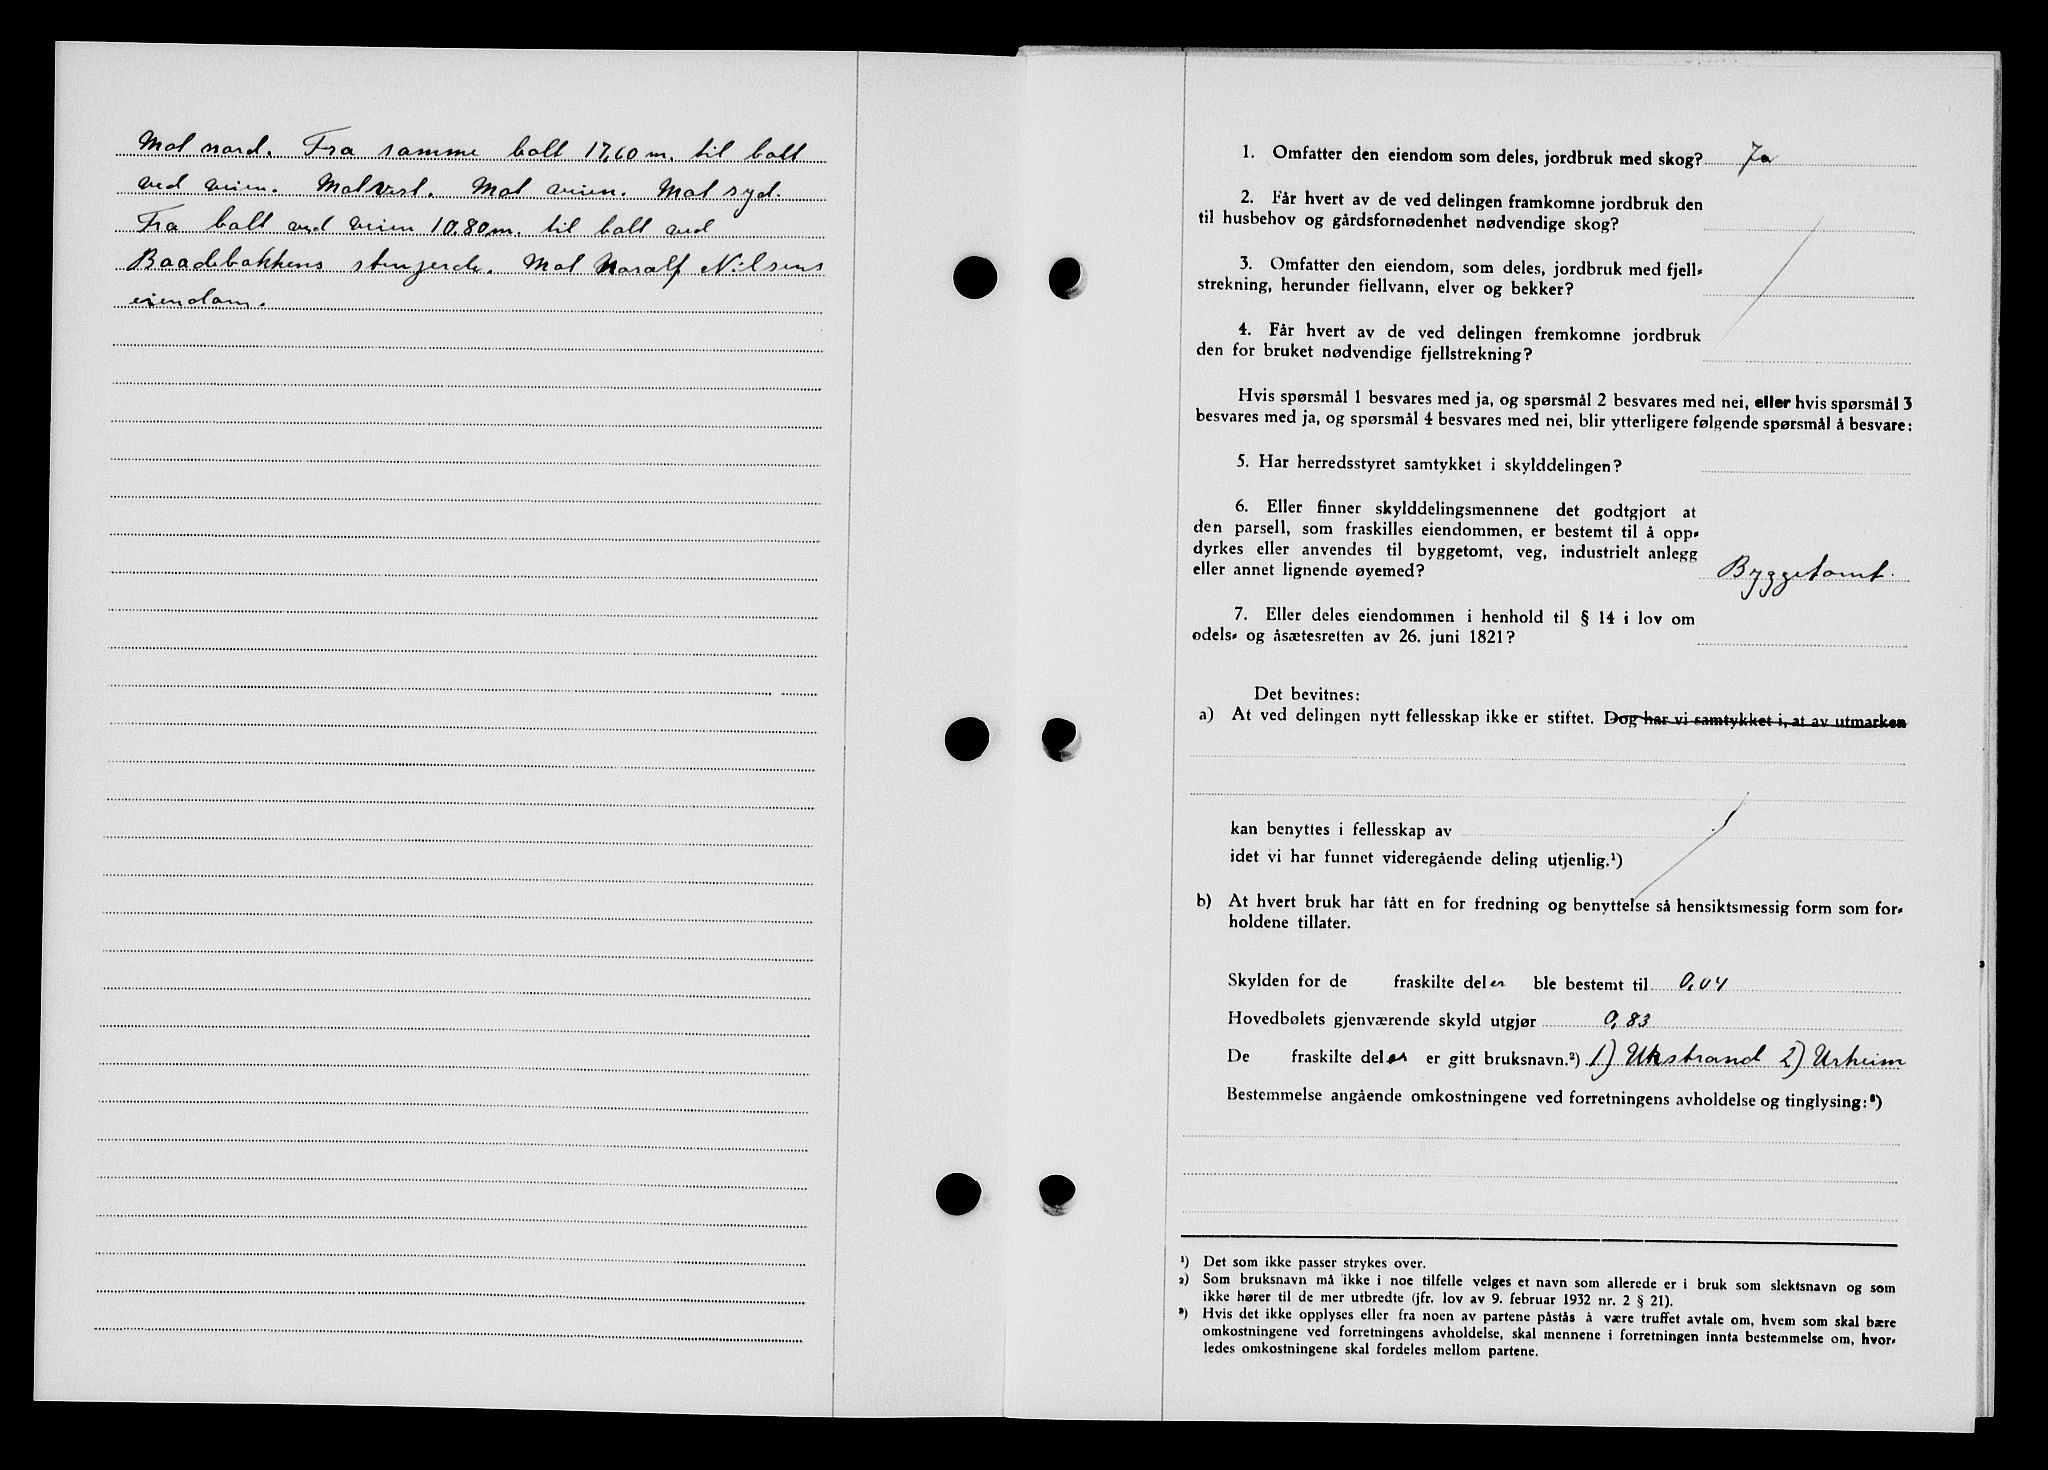 Mot nord. Fra samme bolt 17,60 m. til bolt
ved veien. Mot vest. Mot veien. Mot syd.
Fra bolt ved veien 10,80 m. til bolt ved
Baadebakkens stengjerde. Mot Noralf Nilsens
eiendom.
1. Omfatter den eiendom som deles, jordbruk med skog? Ja
2. Får hvert av de ved delingen framkomne jordbruk den
til husbehov og gårdsfornødenhet nødvendige skog?
3. Omfatter den eiendom, som deles, jordbruk med fjell-
strekning, herunder fiellvann, elver og bekker?
4. Får hvert av de ved delingen fremkomne jordbruk
den for bruket nødvendige fjellstrekning?
Hvis spørsmål 1 besvares med ja, og spørsmål 2 besvares med nei, eller hvis spørsmål 3
besvares med ja, og spørsmål 4 besvares med nei, blir ytterligere følgende spørsmål å besvare:
5. Har herredsstyret samtykket i skylddelingen?
6. Eller finner skylddelingsmennene det godtgjort at
den parsell, som fraskilles eiendommen, er bestemt til å opp-
dyrkes eller anvendes til byggetomt, veg, industrielt anlegg
eller annet lignende øyemed? Byggetomt.
7. Eller deles eiendommen i henhold til § 14 i lov om
odels- og åsætesretten av 26. juni 1821?
Det bevitnes:
a) At ved delingen nytt fellesskap ikke er stiftet. Dog har vi samtykket i, at av utmarken
kan benyttes i fellesskap av
idet vi har funnet videregående deling utjenlig.¹)
b) At hvert bruk har fått en for fredning og benyttelse så hensiktsmessig form som for-
holdene tillater.
Skylden for de fraskilte deler ble bestemt til 0,04
Hovedbølets gjenværende skyld utgjør 0,83
De fraskilte deler er gitt bruksnavn.²) 1) Ukstrand 2) Urheim
Bestemmelse angående omkostningene ved forretningens avholdelse og tinglysing:³)
¹) Det som ikke passer strykes over.
²) Som bruksnavn må ikke i noe tilfelle velges et navn som allerede er i bruk som slektsnavn og som
ikke hører til de mer utbredte (jfr. lov av 9. februar 1932 nr. 2 § 21).
³) Hvis det ikke opplyses eller fra noen av partene påstås å være truffet avtale om, hvem som skal bære
omkostningene ved forretningens avholdelse, skal mennene i forretningen innta bestemmelse om, hvor-
ledes omkostningene skal fordeles mellom partene.